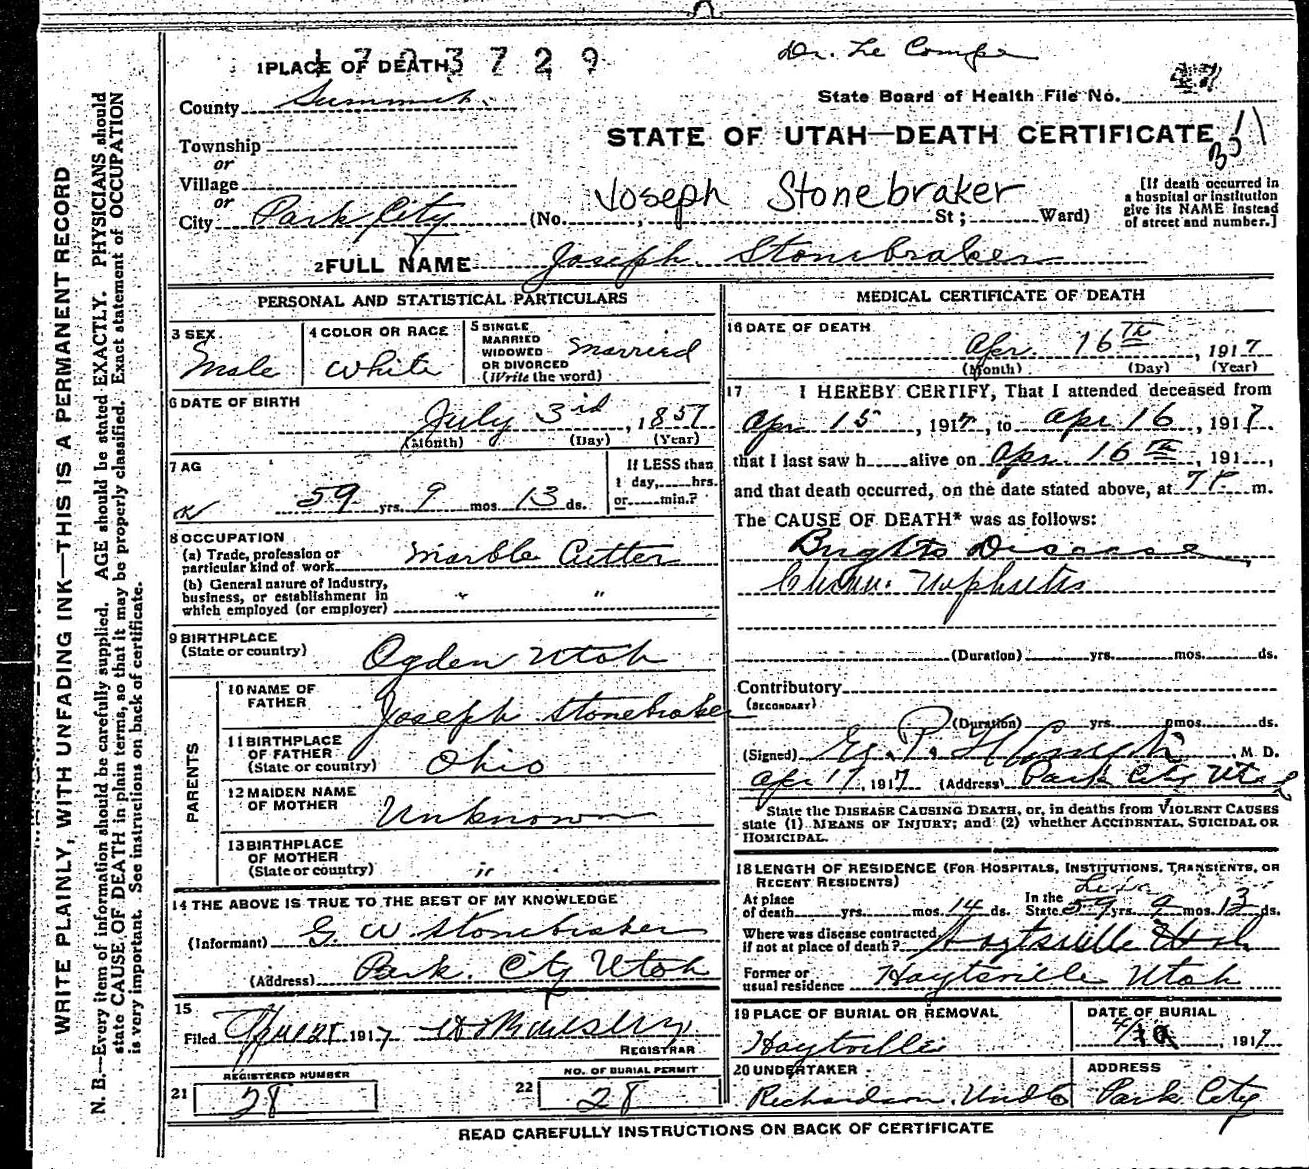 1 PLACE OF DEATH 1703729
Dr. Le Compe
County Summit.
State Board of Health File No.
Township
STATE OF UTAH—DEATH CERTIFICATE
or
Village
or
[If death occurred in
a hospital or institution
give its NAME instead
of street and number.]
Joseph Stonebraker
City Park City (No. St; Ward)
2 FULL NAME Joseph Stonebraker
PERSONAL AND STATISTICAL PARTICULARS
3 SEX
Male
4 COLOR OR RACE
White
5 SINGLE
MARRIED
WIDOWED
OR DIVORCED
(Write the word)
Married
6 DATE OF BIRTH
July 3rd, 1857
(Month) (Day) (Year)
7 AG
59 yrs. 9 mos. 13 ds.
If LESS than
1 day, hrs.
or min.?
8 OCCUPATION
(a) Trade, profession or
particular kind of work Marble Cutter
(b) General nature of Industry,
business, or establishment in
which employed (or employer) " "
9 BIRTHPLACE
(State or country)
Ogden Utah
PARENTS
10 NAME OF
FATHER
Joseph Stonebraker
11 BIRTHPLACE
OF FATHER
(State or country)
Ohio
12 MAIDEN NAME
OF MOTHER
Unknown
13 BIRTHPLACE
OF MOTHER
(State or country) "
14 THE ABOVE IS TRUE TO THE BEST OF MY KNOWLEDGE
(Informant) G. W Stonebraker
(Address) Park City Utah
15
Filed 1917
REGISTRAR
REGISTERED NUMBER
21 28
NO. OF BURIAL PERMIT
22 28
MEDICAL CERTIFICATE OF DEATH
16 DATE OF DEATH
Apr. 16th, 1917
(Month) (Day) (Year)
17 I HEREBY CERTIFY, That I attended deceased from
Apr 15, 1917, to Apr 16, 1917.
that I last saw h alive on Apr 16th, 191 ,
and that death occurred, on the date stated above, at 7 P m.
The CAUSE OF DEATH* was as follows:
Brights Disease
Nephritis
(Duration) yrs. mos. ds.
Contributory
(SECONDARY)
(Duration) yrs. mos. ds.
(Signed) M D.
Apr 17, 1917 (Address) Park City Utah
State the DISEASE CAUSING DEATH, or, in deaths from VIOLENT CAUSES
state (1) MEANS OF INJURY; and (2) whether ACCIDENTAL, SUICIDAL OR
HOMICIDAL.
18 LENGTH OF RESIDENCE (FOR HOSPITALS, INSTITUTIONS, TRANSIENTS, OR
RECENT RESIDENTS)
At place
of death yrs. mos. 14 ds.
In the
State 59 yrs. 9 mos. 13 ds.
Where was disease contracted,
if not at place of death? Hoytsville Utah
Former or
usual residence Hoytsville Utah
19 PLACE OF BURIAL OR REMOVAL
Hoytville
DATE OF BURIAL
4/19, 1917
20 UNDERTAKER
Richardson Undt Co
ADDRESS
Park City
READ CAREFULLY INSTRUCTIONS ON BACK OF CERTIFICATE
WRITE PLAINLY, WITH UNFADING INK—THIS IS A PERMANENT RECORD
N. B.—Every item of information should be carefully supplied. AGE should be stated EXACTLY. PHYSICIANS should
state CAUSE OF DEATH in plain terms, so that it may be properly classified. Exact statement of OCCUPATION
is very important. See instructions on back of certificate.